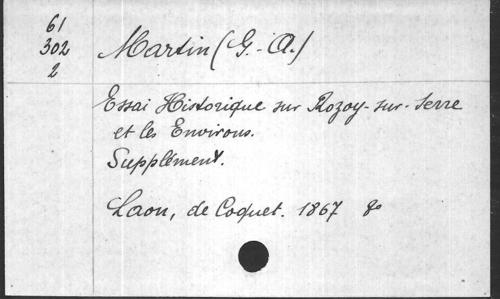 61
302
2
Martin (G.-A.)
Essai Historique sur Rozoy-sur-Serre
et les Environs.
Supplément.
Laon, de Coquet. 1867 8º